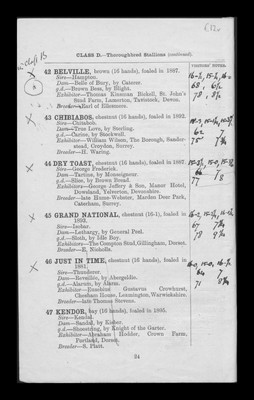 CLASS D.—Thoroughbred Stallions (continued).
VISITORS' NOTES.
42 BELVILLE, brown (16 hands), foaled in 1887.
Sire—Hampton.
Dam—Belle of Bury, by Caterer.
g.d.—Brown Bess, by Blight.
Exhibitor—Thomas Kinsman Bickell, St. John's
Stud Farm, Lamerton, Tavistock, Devon.
Breeder—Earl of Ellesmere.
43 CHIBIABOS, chestnut (16 hands), foaled in 1892.
Sire—Chitabob.
Dam—True Love, by Sterling.
g.d.—Carine, by Stockwell.
Exhibitor—William Wesen, The Borough, Sanderstead, Croydon, Surrey.
Breeder—H. Waring.
44 DRY TOAST, chestnut (16 hands), foaled in 1887.
Sire—George Frederick.
Dam—Tartine, by Mousquetaire.
g.d.—Slice, by Brown Bread.
Exhibitors—George Jeffery & Son, Manor Hotel,
Dowsland, Yelverton, Devonshire.
Breeder—late Hume-Webster, Marden Deer Park,
Caterham, Surrey.
45 GRAND NATIONAL, chestnut (16-1), foaled in
1893.
Sire—
Dam—Lethargy, by General Peel.
g.d.—Sloth, by Idle Boy.
Exhibitors—The Compton Stud, Gillingham, Dorset.
Breeder—E. Nicholls.
46 JUST IN TIME, chestnut (16 hands), foaled in
1891.
Sire—Thunderer.
Dam—Reveillée, by Abergeldie.
g.d.—Alarum, by Alarm.
Exhibitor—Eusebind Gustavus Crowhurst,
Chesham House, Leamington, Warwickshire.
Breeder—late Thomas Stevens.
47 KENDOR, bay (16 hands), foaled in 1895.
Sire—Kendal.
Dam—Sandal, by Kisber.
g.d.—Shoestring, by Knight of the Garter.
Exhibitor—Abraham Hodder, Crown Farm,
Portland, Dorset.
Breeder—S. Platt.
24